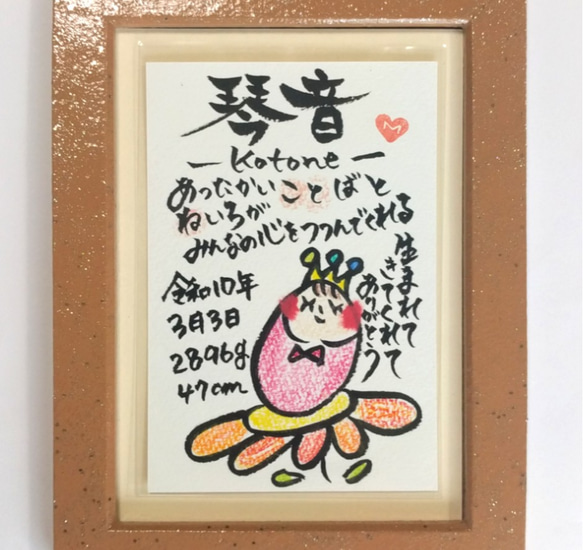 琴音
ー Kotone ー
あったかい ことばと
ねいろが
みんなの心をつつんでくれる
生まれて
きてくれて
ありがとう
令和10年
3月3日
2896g
47cm